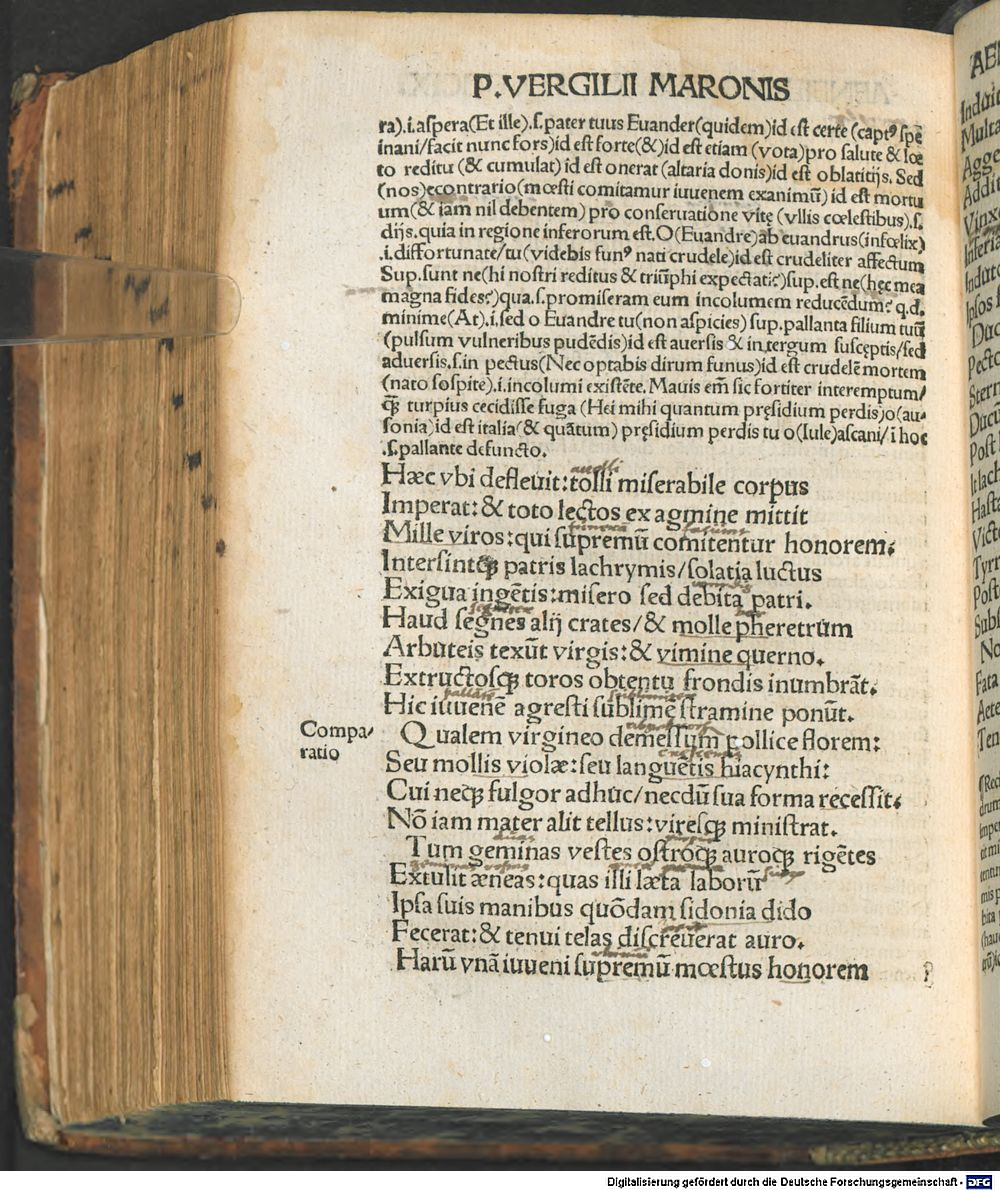 P.VERGILII MARONIS
ra).i.aſpera(Et ille).ſ.pater tuus Euander(quidem)id eſt certe (captꝰ ſpē
inani/facit nunc fors)id eſt forte(&)id eſt etiam (vota)pro ſalute & lœ
to reditu (& cumulat) id eſt onerat (altaria donis)id eſt oblatitijs. Sed
(nos)econtrario(mœſti comitamur iuuenem exanimū) id eſt mortu
um(& iam nil debentem) pro conſeruatione vitę (vllis cœleſtibus).ſ.
dijs.quia in regione inferorum eſt.O(Euandre)ab euandrus(infœlix)
.i.diffortunate/tu(videbis funꝰ nati crudele)id eſt crudeliter affectum
Sup.ſunt ne(hi noſtri reditus & triūphi expectati?)ſup.eſt ne(hęc mea
magna fides?)qua.ſ.promiſeram eum incolumem reducēdum? q.d.
minime(At).i.ſed o Euandre tu(non aſpicies) ſup.pallanta filium tuū
(pulſum vulneribus pudēdis)id eſt auerſis & in tergum ſuſcęptis/ſed
aduerſis.ſ.in pectus(Nec optabis dirum funus)id eſt crudelē mortem
(nato ſoſpite).i.incolumi exiſtēte. Mauis em̄ ſic fortiter interemptum/
q̄ꝫ turpius cecidiſſe fuga (Hei mihi quantum pręſidium perdis)o(au-
ſonia)id eſt italia(& quātum) pręſidium perdis tu o(Iule)aſcani/i hoc
.ſ.pallante defuncto.
Hæc vbi defleuit:tolli miſerabile corpus
Imperat:& toto lectos ex agmine mittit
Mille viros:qui ſupremū comitentur honorem:
Interſintqꝫ patris lachrymis/ſolatia luctus
Exigua ingētis:miſero ſed debita patri.
Haud ſegnes alij crates/& molle pheretrum
Arbuteis texūt virgis:& vimine querno.
Extructoſqꝫ toros obtentu frondis inumbrāt.
Hic iuuenē agreſti ſublimē ſtramine ponūt.
Compa-
ratio
Qualem virgineo demeſſum pollice florem:
Seu mollis violæ:ſeu languētis hiacynthi:
Cui neqꝫ fulgor adhuc/necdū ſua forma receſſit.
Nō iam mater alit tellus:vireſqꝫ miniſtrat.
Tum geminas veſtes oſtroqꝫ auroqꝫ rigētes
Extulit æneas:quas illi læta laborū
Ipſa ſuis manibus quōdam ſidonia dido
Fecerat:& tenui telas diſcreuerat auro.
Harū vnā iuueni ſupremū mœſtus honorem
AE
Induit
Multa
Agge
Addit
Vinx
Inferia
Induto
Ipſos
Duc
Pecto
Stern
Ducū
Poſt
It lach
Haſta
Victo
Tyrr
Poſt
Subl
No
Fata
Aete
Ten
Digitalisierung gefördert durch die Deutsche Forschungsgemeinschaft - DFG